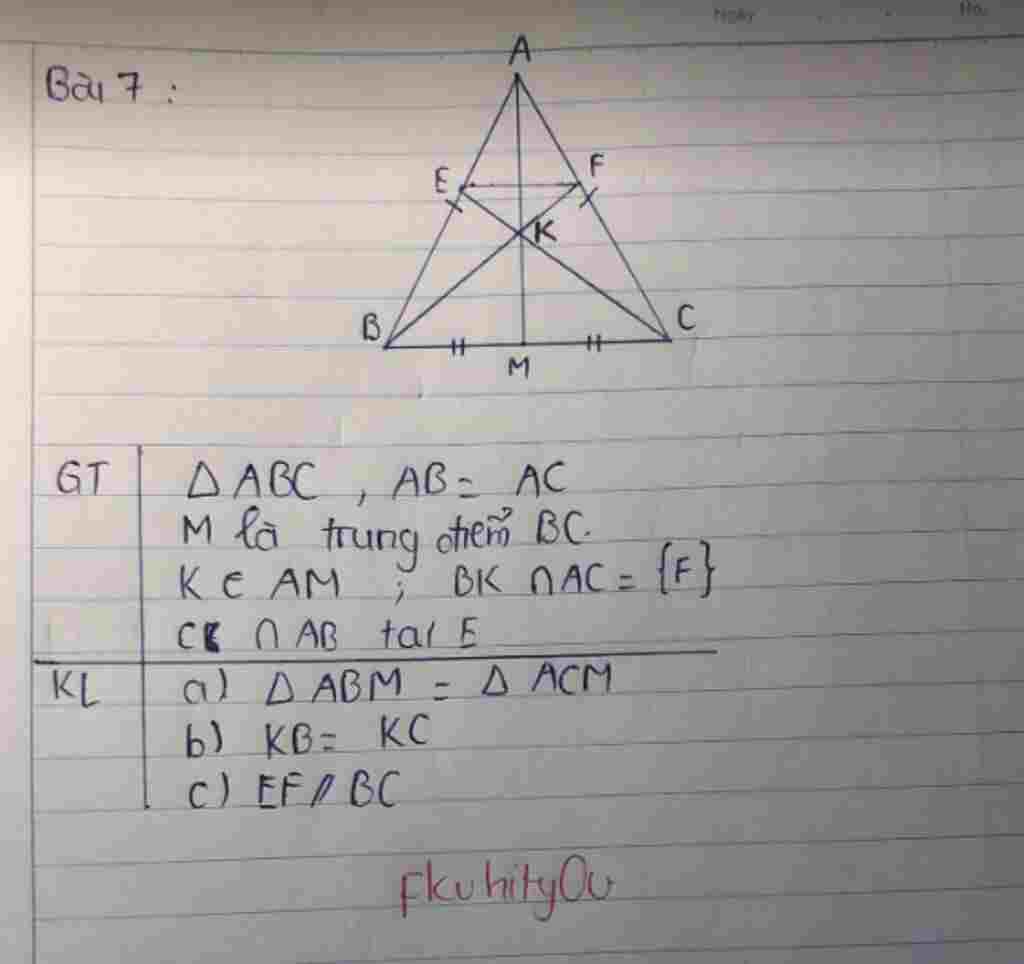 Ngày No.
Bài 7 :
A
E F
K
B C
M
GT Δ ABC , AB = AC
M là trung điểm BC.
K ∈ AM ; BK ∩ AC = {F}
CK ∩ AB tại E
KL a) Δ ABM = Δ ACM
b) KB = KC
c) EF // BC
fkuhity0u